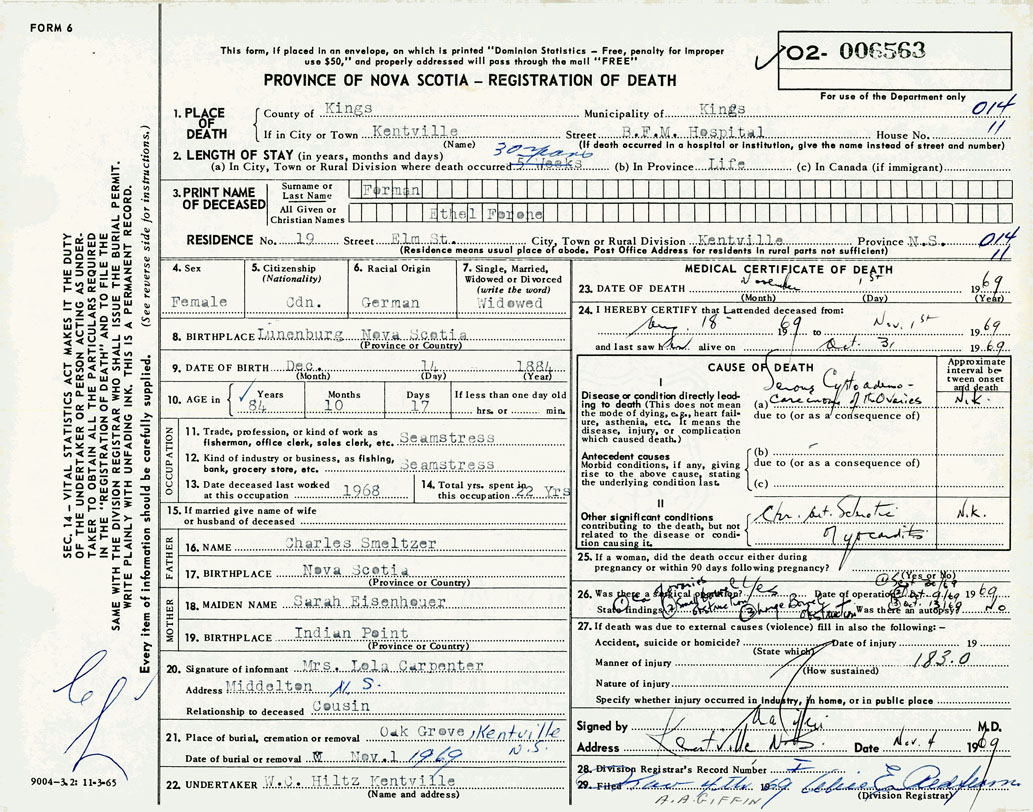 FORM 6
This form, if placed in an envelope, on which is printed "Dominion Statistics – Free, penalty for improper
use $50," and properly addressed will pass through the mail "FREE"
PROVINCE OF NOVA SCOTIA – REGISTRATION OF DEATH
02- 006563
For use of the Department only
1. PLACE OF DEATH
County of Kings Municipality of Kings 014
If in City or Town Kentville Street B.F.M. Hospital House No. 11
(Name) (If death occurred in a hospital or institution, give the name instead of street and number)
2. LENGTH OF STAY (in years, months and days) 30 years
(a) In City, Town or Rural Division where death occurred 5 Weeks (b) In Province Life (c) In Canada (if immigrant)
3. PRINT NAME OF DECEASED
Surname or Last Name Forman
All Given or Christian Names Ethel Forone
RESIDENCE No. 19 Street Elm St. City, Town or Rural Division Kentville Province N.S. 014
(Residence means usual place of abode. Post Office Address for residents in rural parts not sufficient) 11
4. Sex
Female
5. Citizenship
(Nationality)
Cdn.
6. Racial Origin
German
7. Single, Married,
Widowed or Divorced
(write the word)
Widowed
8. BIRTHPLACE Lunenburg Nova Scotia
(Province or Country)
9. DATE OF BIRTH Dec. 14 1884
(Month) (Day) (Year)
10. AGE in Years Months Days If less than one day old
84 10 17 hrs. or min.
OCCUPATION
11. Trade, profession, or kind of work as
fisherman, office clerk, sales clerk, etc. Seamstress
12. Kind of industry or business, as fishing,
bank, grocery store, etc. Seamstress
13. Date deceased last worked
at this occupation 1968
14. Total yrs. spent in
this occupation 22 Yrs
15. If married give name of wife
or husband of deceased
FATHER
16. NAME Charles Smeltzer
17. BIRTHPLACE Nova Scotia
(Province or Country)
MOTHER
18. MAIDEN NAME Sarah Eisenhouer
19. BIRTHPLACE Indian Point
(Province or Country)
20. Signature of informant Mrs. Lola Carpenter
Address Middelton N.S.
Relationship to deceased Cousin
21. Place of burial, cremation or removal Oak Grove, Kentville
N.S.
Date of burial or removal Nov. 1 1969
22. UNDERTAKER W.C. Hiltz Kentville
(Name and address)
MEDICAL CERTIFICATE OF DEATH
23. DATE OF DEATH November 1st 1969
(Month) (Day) (Year)
24. I HEREBY CERTIFY that I attended deceased from:
Aug. 18 1969 to Nov. 1st 1969
and last saw her alive on Oct. 31 1969
CAUSE OF DEATH
Approximate
interval be-
tween onset
and death
I
Disease or condition directly lead-
ing to death (This does not mean
the mode of dying, e.g., heart fail-
ure, asthenia, etc. It means the
disease, injury, or complication
which caused death.)
Serous Cystoadeno-
(a) Carcinoma of Ovaries N.K.
due to (or as a consequence of)
Antecedent causes
Morbid conditions, if any, giving
rise to the above cause, stating
the underlying condition last.
(b)
due to (or as a consequence of)
(c)
II
Other significant conditions
contributing to the death, but not
related to the disease or condi-
tion causing it.
Chr. Art. N.K.
Myocarditis
25. If a woman, did the death occur either during
pregnancy or within 90 days following pregnancy?
(Yes or No)
26. Was there a surgical operation? Yes Date of operation 1969
① Sept 20/69
② Oct. 9/69
③ Oct. 13/69
State findings ① Ca ovaries ② Small bowel obstruction ③ Large Bowel obstruction Was there an autopsy? No
27. If death was due to external causes (violence) fill in also the following: –
Accident, suicide or homicide? Date of injury 19
(State which)
Manner of injury 183.0
(How sustained)
Nature of injury
Specify whether injury occurred in Industry, in home, or in public place
Signed by M.D.
Address Kentville N.S. Date Nov. 4 1969
28. Division Registrar's Record Number
29. Filed Nov 4 th 1969
(Division Registrar)
A.A. GIFFIN
SEC. 14 – VITAL STATISTICS ACT MAKES IT THE DUTY
OF THE UNDERTAKER OR PERSON ACTING AS UNDER-
TAKER TO OBTAIN ALL THE PARTICULARS REQUIRED
IN THE "REGISTRATION OF DEATH" AND TO FILE THE
SAME WITH THE DIVISION REGISTRAR WHO SHALL ISSUE THE BURIAL PERMIT.
WRITE PLAINLY WITH UNFADING INK. THIS IS A PERMANENT RECORD.
Every item of information should be carefully supplied. (See reverse side for instructions.)
9004-3.2: 11-3-65